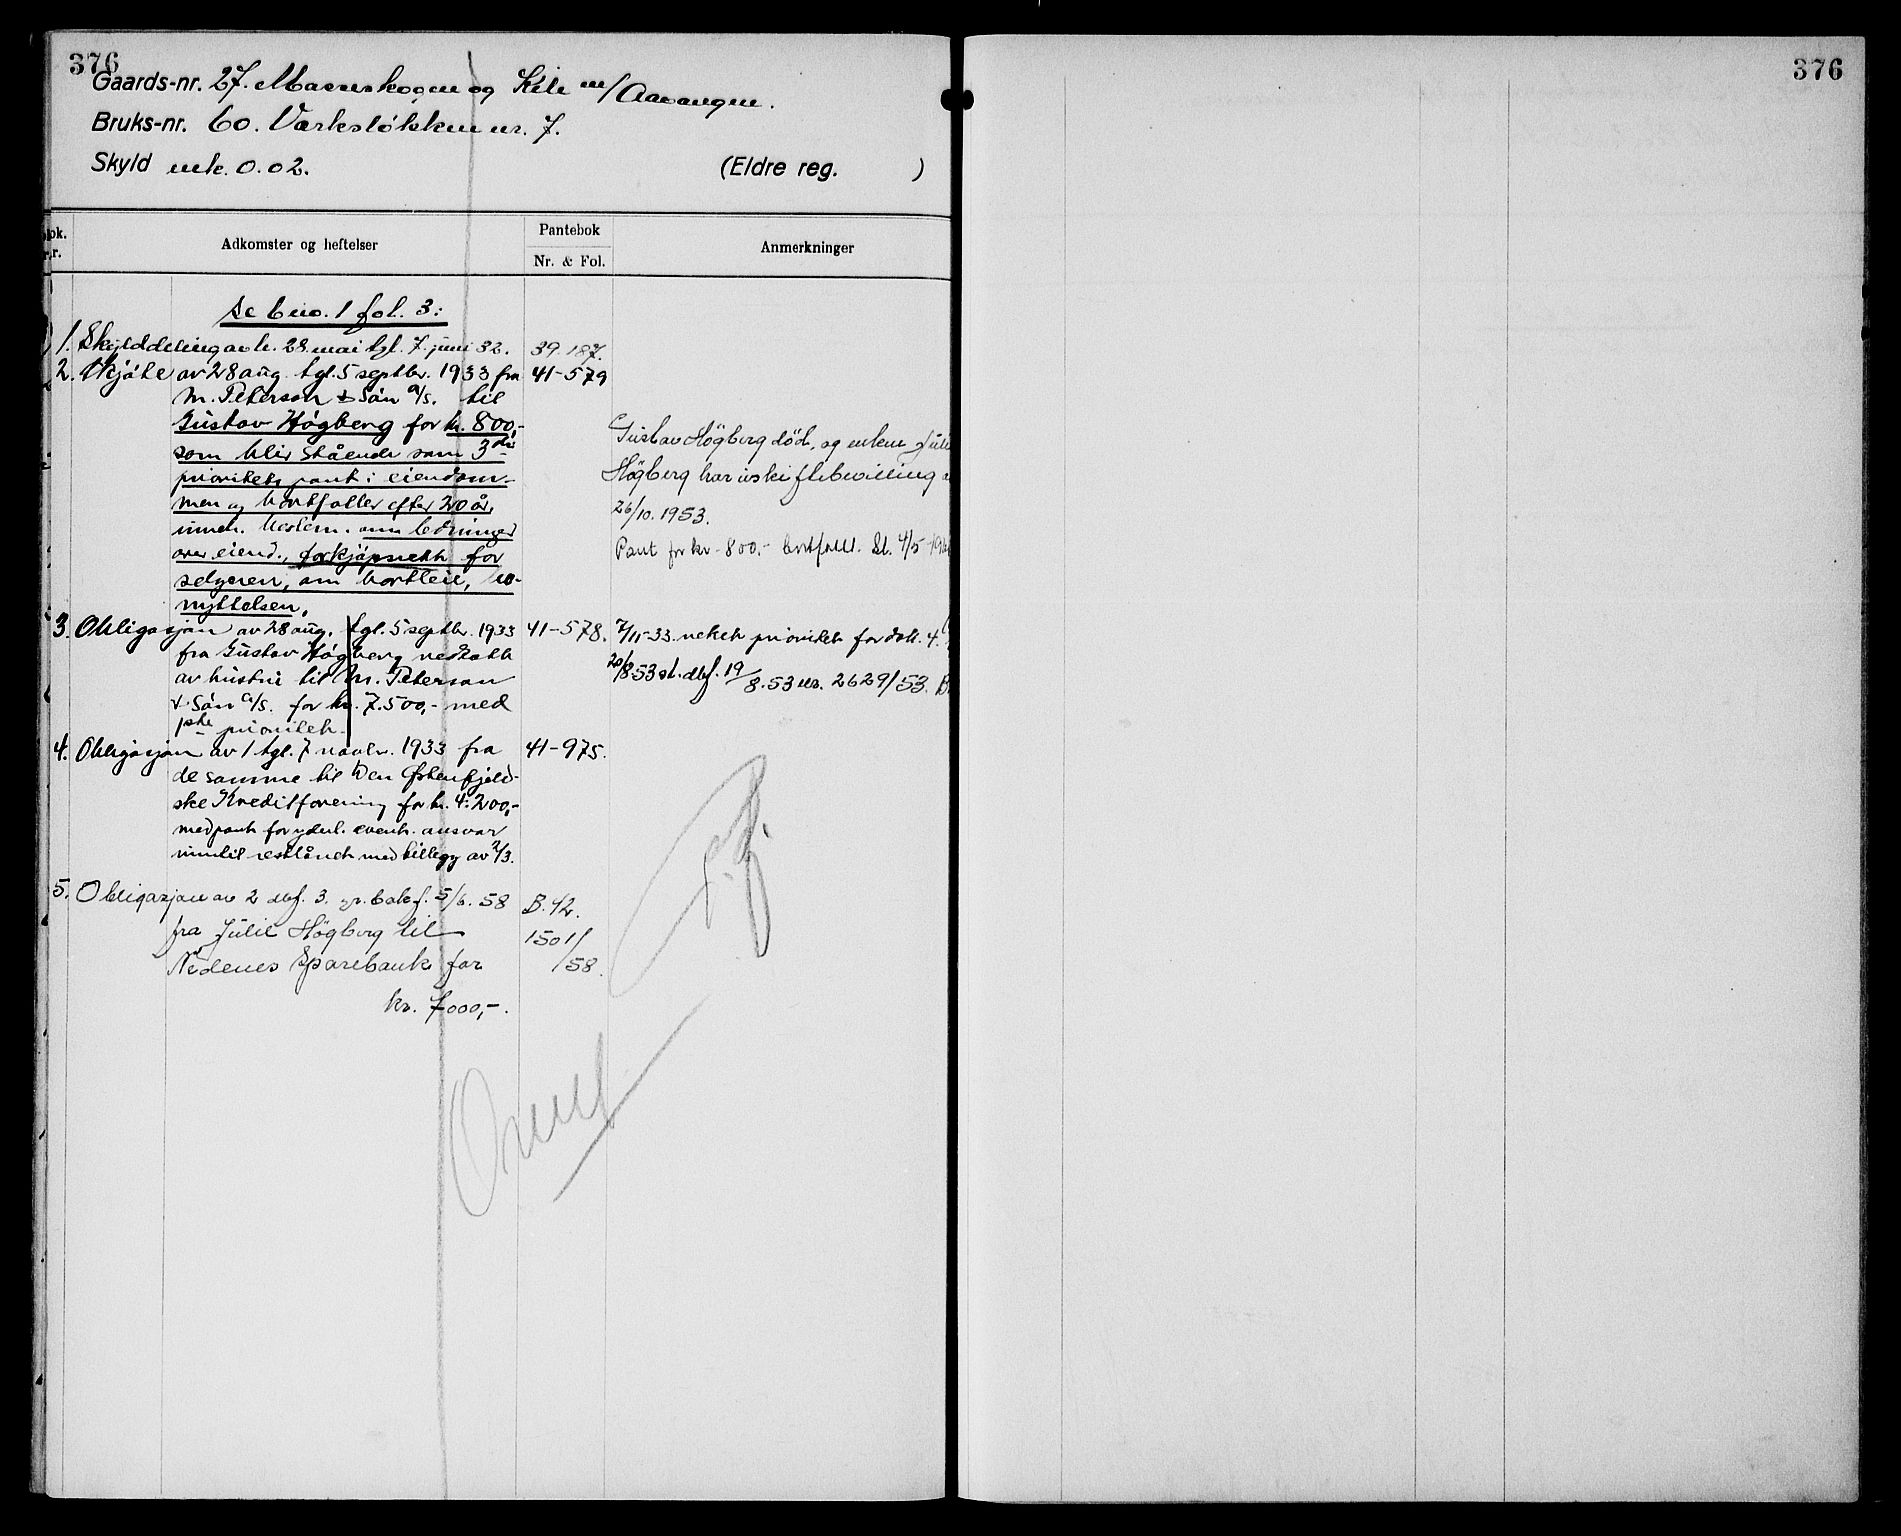 376
Gaards-nr. 27. Maereskogen og Kile m/ Aavangen.
Bruks-nr. 60. Verksløkken nr. 7.
Skyld mk. 0.02. (Eldre reg. )
ok.
r.
Adkomster og heftelser
Pantebok
Nr. & Fol.
Anmerkninger
Se bno. 1 fol. 3:
1. Skylddeling avh. 28 mai tgl. 7. juni 32. 39.187.
2. Skjøte av 28 aug. tgl. 5 septbr. 1933 fra 41-579
M. Peterson & Søn A/S. til
Gustav Høgberg for kr. 800,-
som blir stående som 3die
prioritets pant i eiendom-
men og bortfaller efter 20 år,
inneh. bestem. om ledninger
over eiend., forkjøpsrett for
selgeren, om bortleie, be-
nyttelsen.
Gustav Högberg död, og enken Julie
Högberg har uskiftebevilling
26/10. 1953.
Pant for kr. 800,- bortfalt. Sl. 4/5
3. Obligasjon av 28 aug. tgl. 5 septbr. 1933 41-578.
fra Gustav Høgberg vedtatt
av hustru til M. Peterson
& Søn A/S. for kr. 7.500,- med
1ste prioritet.
7/11-33. veket prioritet for dok. 4.
20/8 53 sl. dbf. 19/8.53 nr. 2629/53. B.
4. Obligasjon av 1 tgl. 7 novbr. 1933 fra 41-975.
de samme til Den Østenfjeld-
ske Kreditforening for kr. 4.200,-
med pant for yderl. event. ansvar
inntil restlånet med tillegg av 2/3.
5. Obligasjon av 2 dbf. 3. 5/6. 58 B. 42.
fra Julie Högberg til 1501/
Nedenes Sparebank for 58.
kr. 7000,-.
376